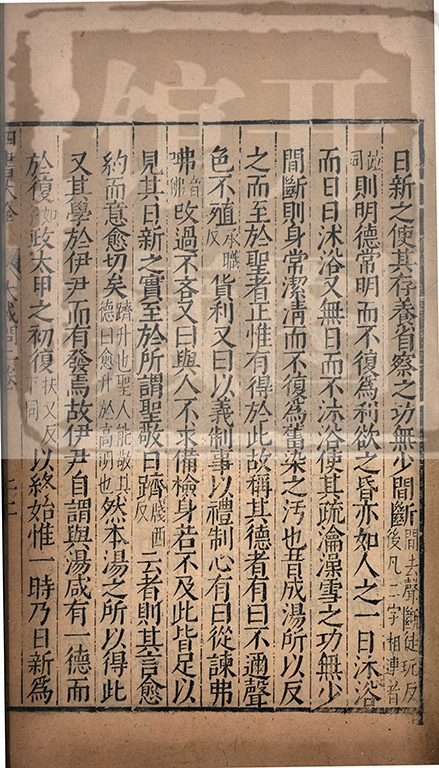 日新之使其存養省察之功無少間斷間去聲斷徒玩反後凡二字相連者
同則明德常明而不復爲利欲之昏亦如人之一日沐浴
而日日沐浴又無日而不沐浴使其疏瀹澡雪之功無少
間斷則身常潔清而不復爲舊染之汚也昔成湯所以反
之而至於聖者正惟有得於此故稱其德者有曰不邇聲
色不殖承職反貨利又曰以義制事以禮制心有曰從諫弗
咈音佛改過不吝又曰與人不求備檢身若不及此皆足以
見其日新之實至於所謂聖敬日躋牋西反云者則其言愈
約而意愈切矣躋升也聖人能敬其德日愈升於高明也然本湯之所以得此
又其學於伊尹而有發焉故伊尹自謂與湯咸有一德而
於復如字政太甲之初復扶又反下同以終始惟一時乃日新爲
四書大全